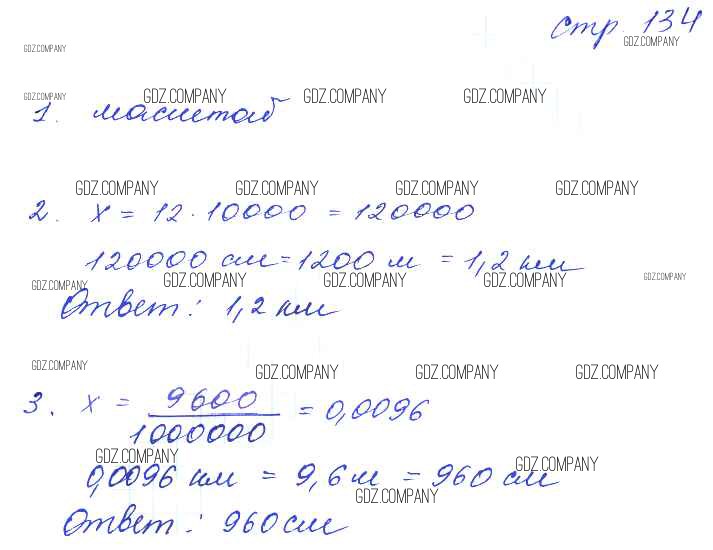 стр. 134
GDZ.COMPANY
GDZ.COMPANY
GDZ.COMPANY
GDZ.COMPANY GDZ.COMPANY GDZ.COMPANY
1. масштаб
GDZ.COMPANY GDZ.COMPANY GDZ.COMPANY GDZ.COMPANY
2. x = 12 · 10000 = 120000
120000 см = 1200 м = 1,2 км
GDZ.COMPANY GDZ.COMPANY GDZ.COMPANY GDZ.COMPANY GDZ.COMPANY
Ответ: 1,2 км
GDZ.COMPANY GDZ.COMPANY GDZ.COMPANY GDZ.COMPANY
3. x = 9600 / 1000000 = 0,0096
GDZ.COMPANY GDZ.COMPANY
0,0096 км = 9,6 м = 960 см
GDZ.COMPANY
Ответ: 960 см